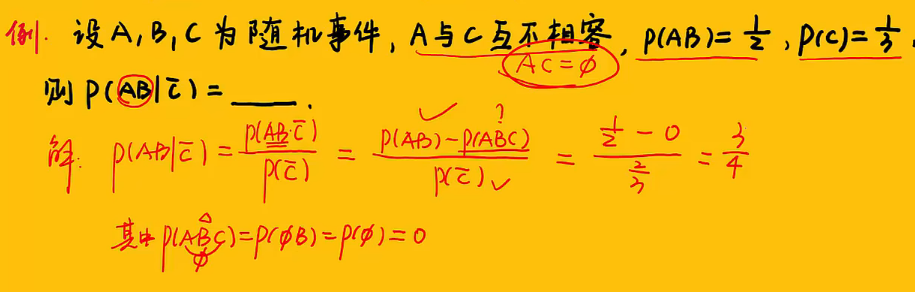 例. 设A,B,C为随机事件, A与C互不相容, P(AB)=1/2, P(C)=1/3,
AC=∅
则P(AB|C̄)=____.
解: P(AB|C̄)=P(AB·C̄)/P(C̄)=(P(AB)-P(ABC))/P(C̄)=(1/2-0)/(2/3)=3/4
✓ ? ✓
其中P(ABC)=P(∅B)=P(∅)=0
∅